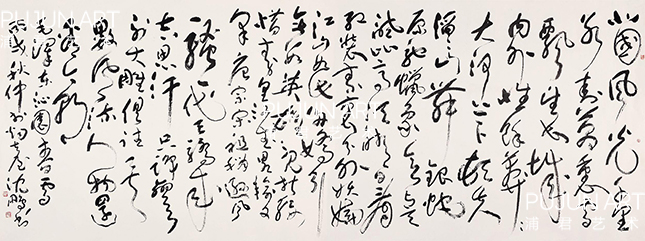 北國風光千里
冰封萬里雪
飄望長城
内外惟餘莽莽
大河上下頓失
滔滔山舞銀蛇
原馳蠟象欲與天
公試比高須晴日看
紅裝素裹分外妖嬈
江山如此多嬌引
無數英雄競折腰
惜秦皇漢武略輸文
采唐宗宋祖稍遜風
騷一代天驕成
吉思汗只識彎弓
射大雕俱往矣
數風流人物還
看今朝
毛澤東沁園春雪
秋仲於 沈鵬書
PUJUN ART
浦君艺术